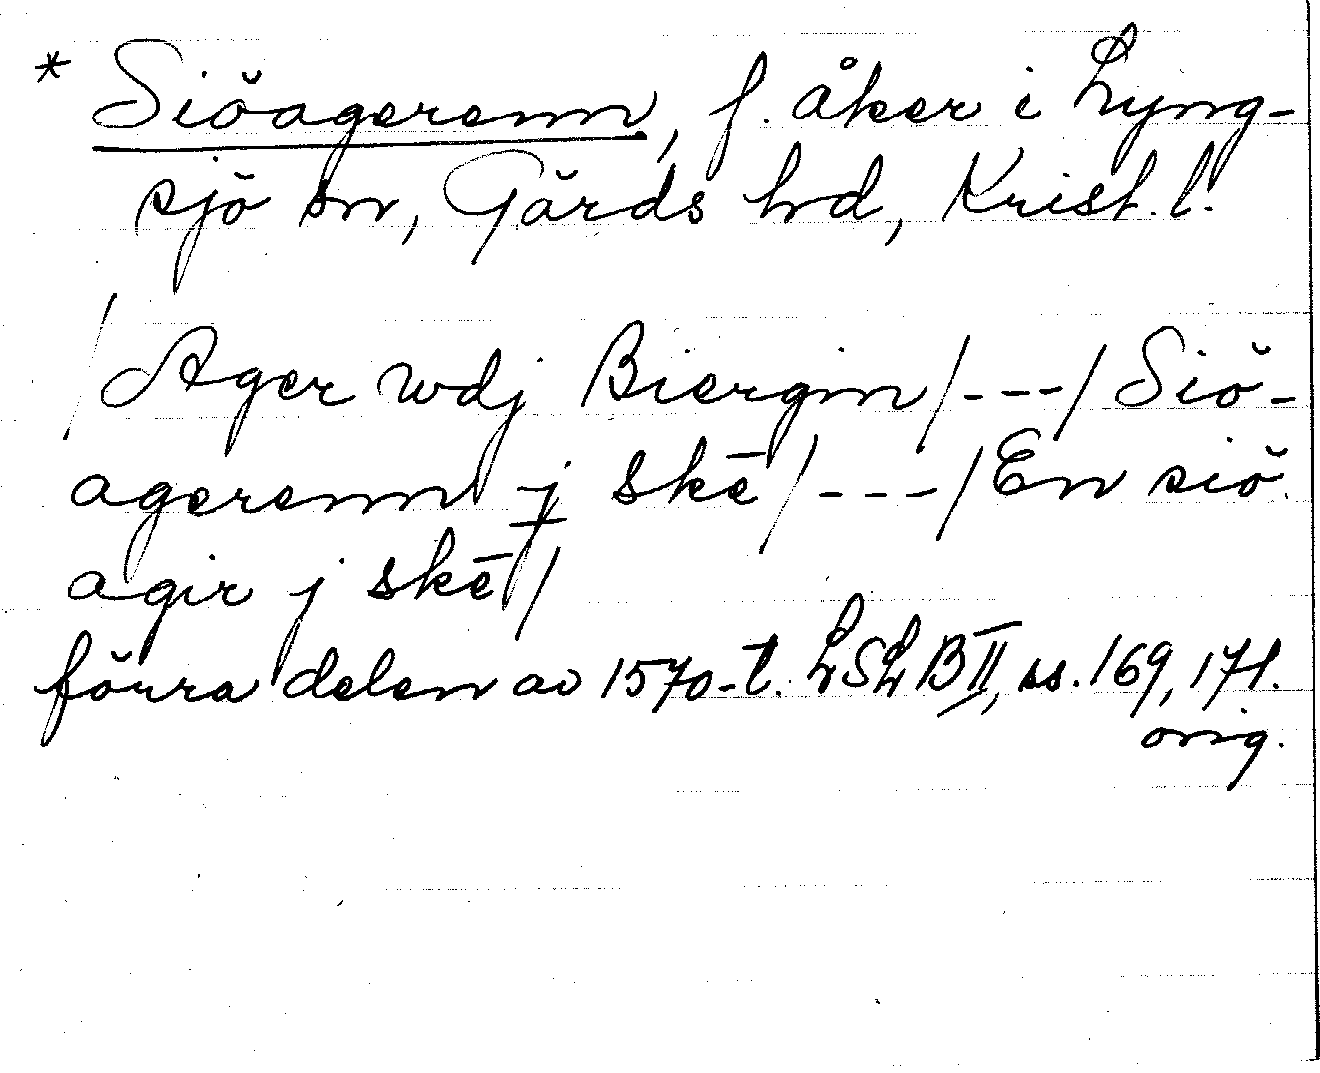 * Siöagerenn, f. åker i Lyng-
sjö sn, Gärds hd, Krist. l.
/Ager wdj Biergin/---/Siö-
agerenn j skē/---/En siö
agir j skē/
förra delen av 1570-t. LSL B II, ss. 169, 171.
orig.